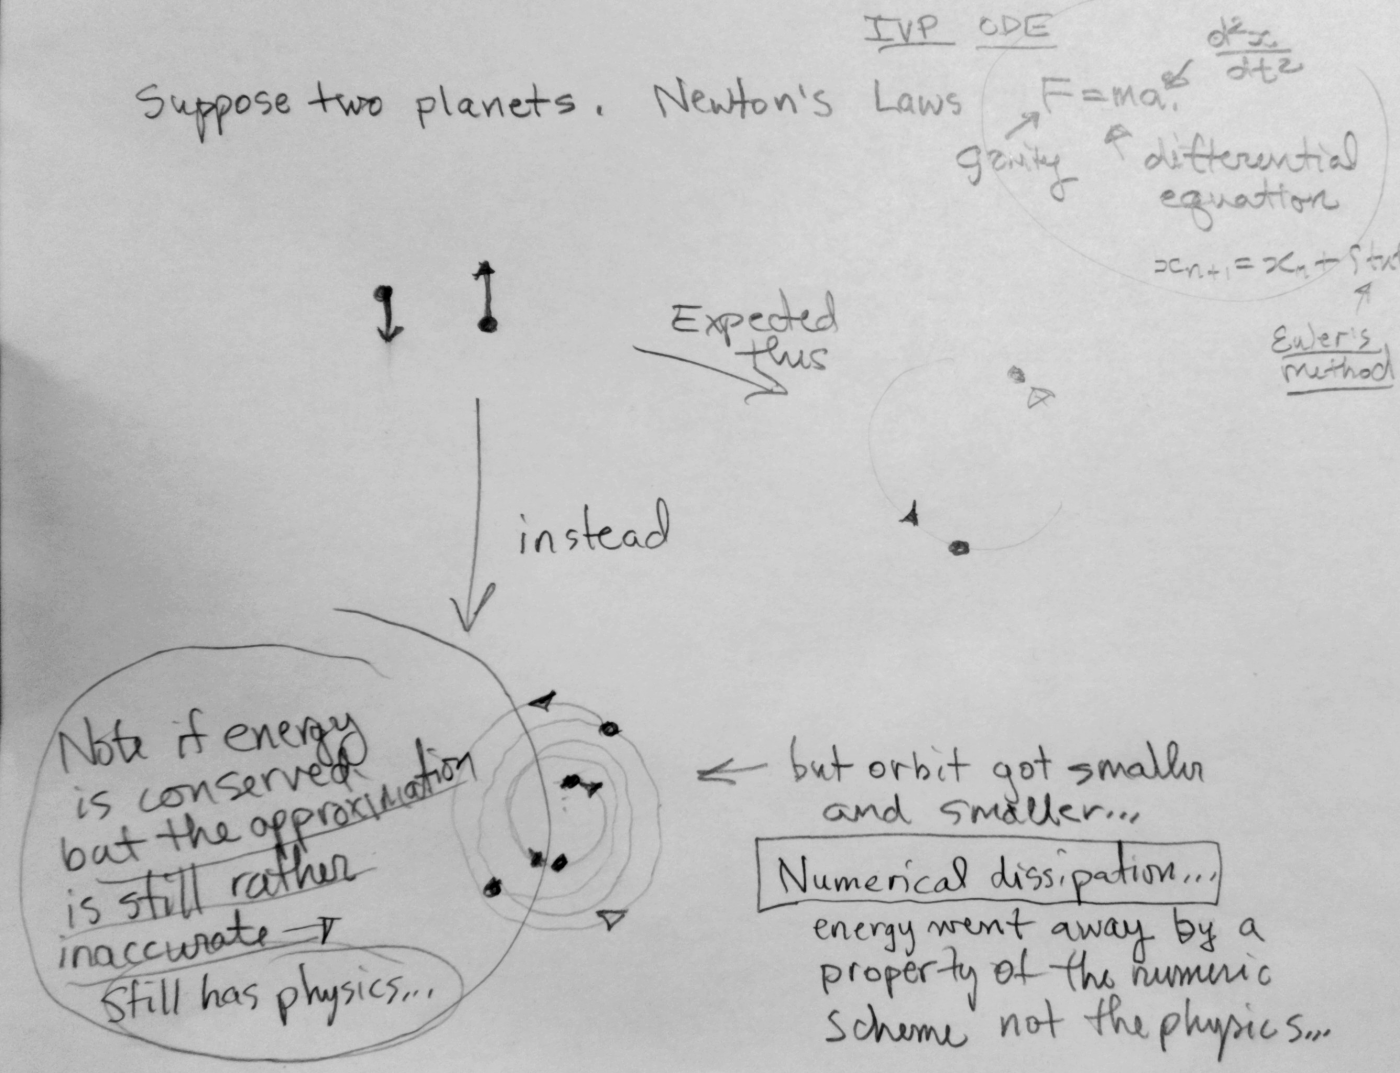 IVP ODE
d²x
dt²
Suppose two planets. Newton's Laws F=ma.
gravity differential
equation
xₙ₊₁ = xₙ +
Euler's
method
Expected
this
instead
Note if energy
is conserved
but the approximation
is still rather
inaccurate →
still has physics...
← but orbit got smaller
and smaller...
Numerical dissipation...
energy went away by a
property of the numeric
scheme not the physics...